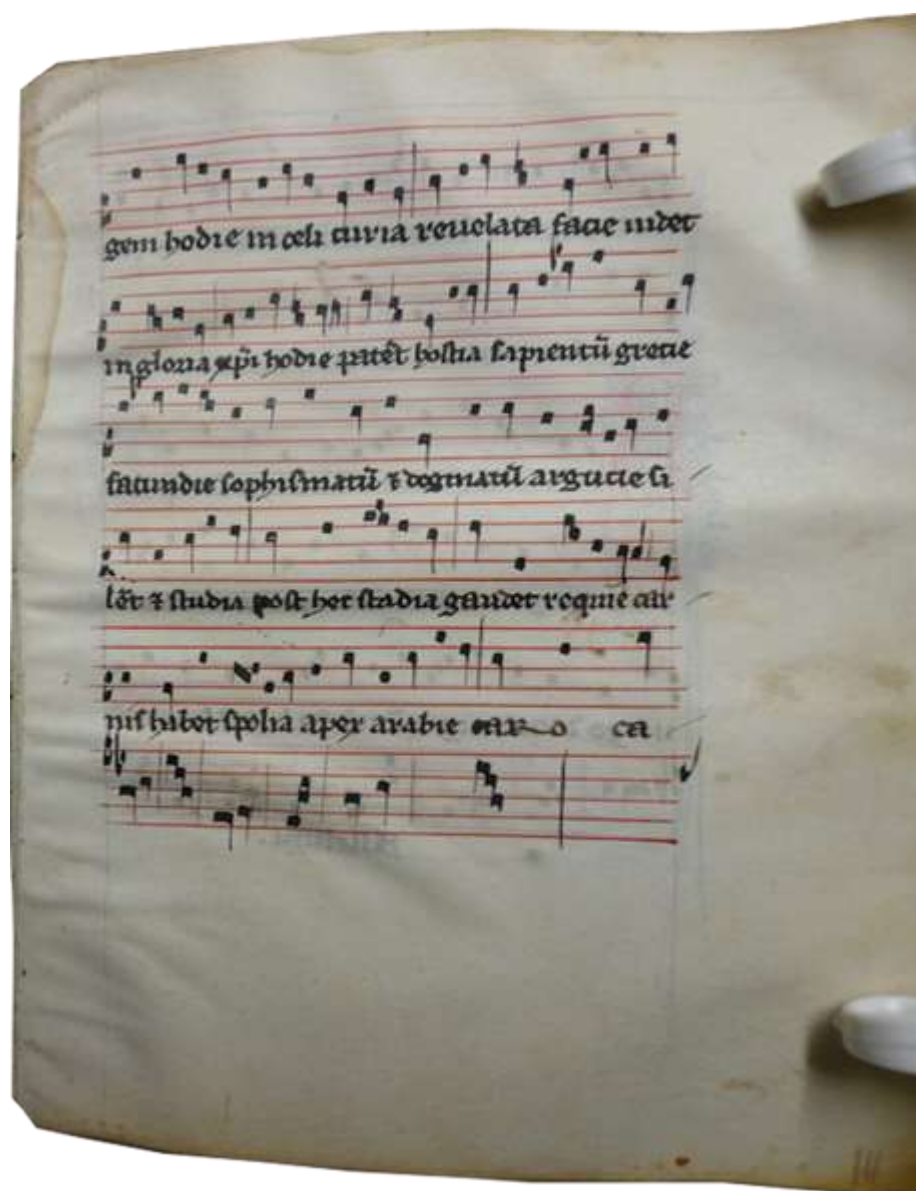 gem hodie in celi curia reuelata facie uidet
in gloria xp̄i hodie patēt hostia sapientū grecie
facundie sophismatū ⁊ dogmatū argucie si
lēt ⁊ studia post hec stadia gaudet requie car
nis habet spolia aper arabie caro ca